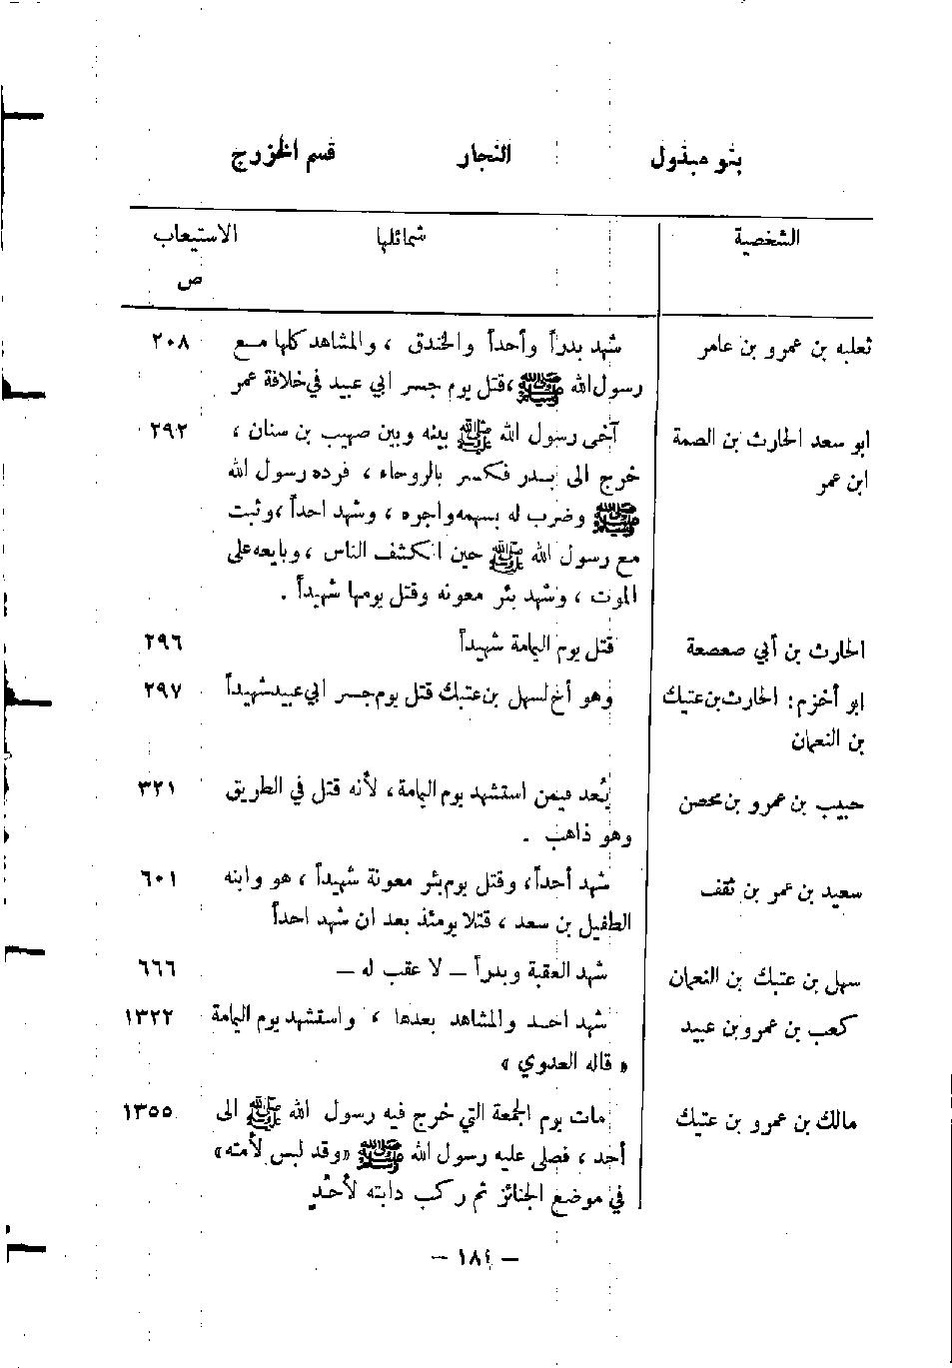 بنو مبذول النجار قسم الخزرج
الشخصية شمائلها الاستيعاب
ص
ثعلبه بن عمرو بن عامر شهد بدراً وأحداً والخندق ، والمشاهد كلها مع ٢٠٨
رسول الله ﷺ ، قتل يوم جسر ابي عبيد في خلافة عمر
ابو سعد الحارث بن الصمة آخى رسول الله ﷺ بينه وبين صهيب بن سنان ، ٢٩٢
ابن عمر خرج الى بدر فكسر بالروحاء ، فرده رسول الله
ﷺ وضرب له بسهمه واجره ، وشهد احداً ، وثبت
مع رسول الله ﷺ حين انكشف الناس ، وبايعه على
الموت ، وشهد بئر معونه وقتل يومها شهيداً .
الحارث بن أبي صعصعة قتل يوم اليمامة شهيداً ٢٩٦
ابو أخزم: الحارث بن عتيك وهو أخ لسهل بن عتيك قتل يوم جسر ابي عبيد شهيداً ٢٩٧
بن النعمان
حبيب بن عمرو بن محصن يُعد فيمن استشهد يوم اليمامة ، لأنه قتل في الطريق ٣٢١
وهو ذاهب .
سعيد بن عمر بن ثقف شهد أحداً ، وقتل يوم بئر معونة شهيداً ، هو وابنه ٦٠١
الطفيل بن سعد ، قتلا يومئذ بعد ان شهد احداً
سهل بن عتيك بن النعمان شهد العقبة وبدراً – لا عقب له – ٦٦٦
كعب بن عمرو بن عبيد شهد احد والمشاهد بعدها ، واستشهد يوم اليمامة ١٣٢٢
« قاله العدوي »
مالك بن عمرو بن عتيك مات يوم الجمعة التي خرج فيه رسول الله ﷺ الى ١٣٥٥
أحد ، فصلى عليه رسول الله ﷺ «وقد لبس لأمته»
في موضع الجنائز ثم ركب دابته لأحُدٍ
– ١٨٤ –